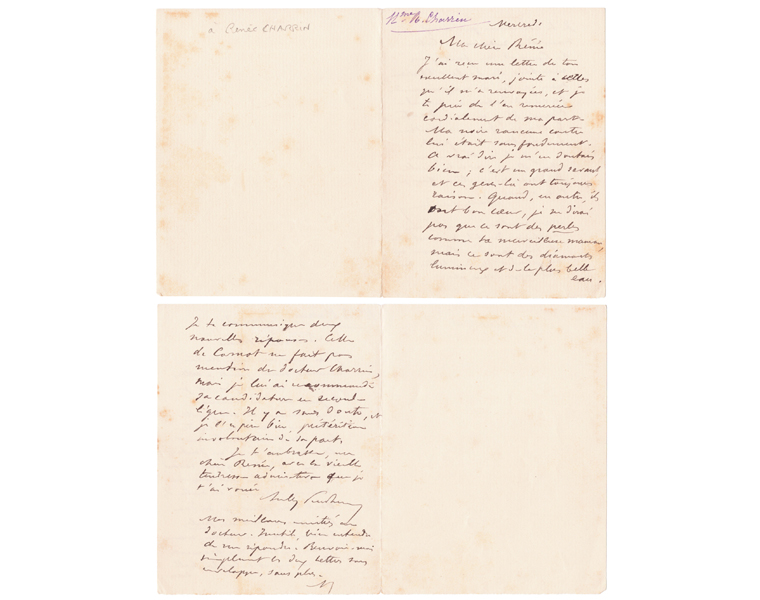 à Renée CHARRIN
Mme R. Charrin
Mercredi
Ma chère Rénée
J'ai reçu une lettre de ton
excellent mari, jointe à celles
qu'il m'a renvoyées, et je
te prie de l'en remercier
cordialement de ma part.
Ma noire rancune contre
lui était sans fondement.
A vrai dire je m'en doutais
bien ; c'est un grand savant
et ces gens-là ont toujours
raison. Quand, en outre, ils
ont bon cœur, je ne dirai
pas que ce sont des perles
comme ta merveilleuse maman,
mais ce sont des diamants
lumineux et de la plus belle
eau.
Je te communique deux
nouvelles réponses. Celle
de Carnot ne fait pas
mention du docteur Charrin,
mais je lui ai recommandé
sa candidature en seconde
ligne. Il y a sans doute, et
je bien, prétérition
involontaire de sa part.
Je t'embrasse, ma
chère Renée, avec la vieille
tendresse admirative que je
t'ai vouée
Mes meilleures amitiés au
docteur. Inutile, bien entendu
de me répondre. Renvoie-moi
simplement les deux lettres sous
enveloppe, sans plus.